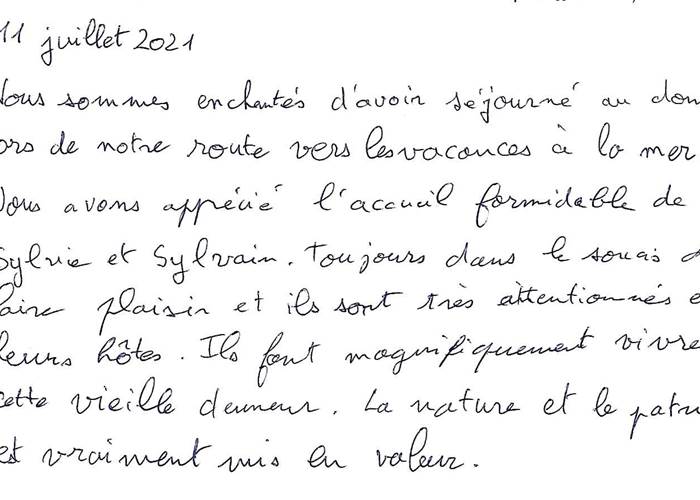 11 juillet 2021
Nous sommes enchantés d'avoir séjourné au don
ors de notre route vers les vacances à la mer
Nous avons apprécié l'accueil formidable de
Sylvie et Sylvain. Toujours dans le soucis d
faire plaisir et ils sont très attentionnés e
leurs hôtes. Ils font magnifiquement vivre
cette vieille demeur. La nature et le patri
est vraiment mis en valeur.